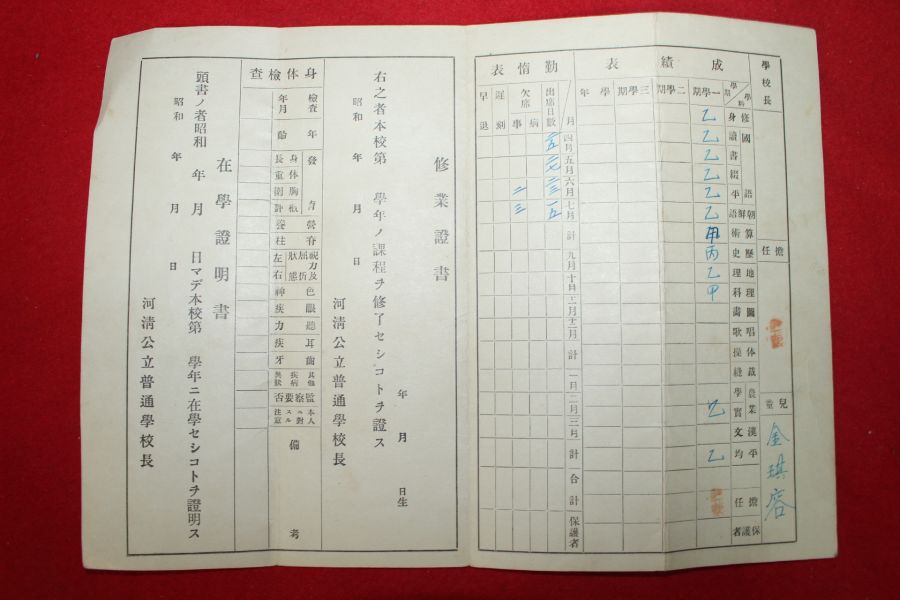 學校長
擔任
兒童 金琪容
成績表
學期 學科 一學期 二學期 三學期 學年
修身 乙
國語 讀書 乙
綴 乙
平 乙
朝鮮語 乙
算術 甲
歷史 丙
地理 乙
理科 甲
圖畫
唱歌
体操
裁縫
農業 學 實 乙
漢文
平均 乙
擔任
保護者
勤惰表
月 四月 五月 六月 七月 計 九月 十月 十一月 十二月 計 一月 二月 三月 計 合計 保護者
出席日數
欠席 病 事 二 三
遲刻
早退
修業證書
年 月 日生
右之者本校第 學年ノ課程ヲ修了セシコトヲ證ス
昭和 年 月 日
河淸公立普通學校長
身体檢査
檢査年月
年齡
發育 身長 体重 胸圍
營養
脊柱
視力及屈折狀態 左 右
色神
眼疾
聽力
耳疾
齒牙
其他疾病異狀
監察要否
本人ニ對スル注意
備考
在學證明書
頭書ノ者昭和 年 月 日マデ本校第 學年ニ在學セシコトヲ證明ス
昭和 年 月 日
河淸公立普通學校長